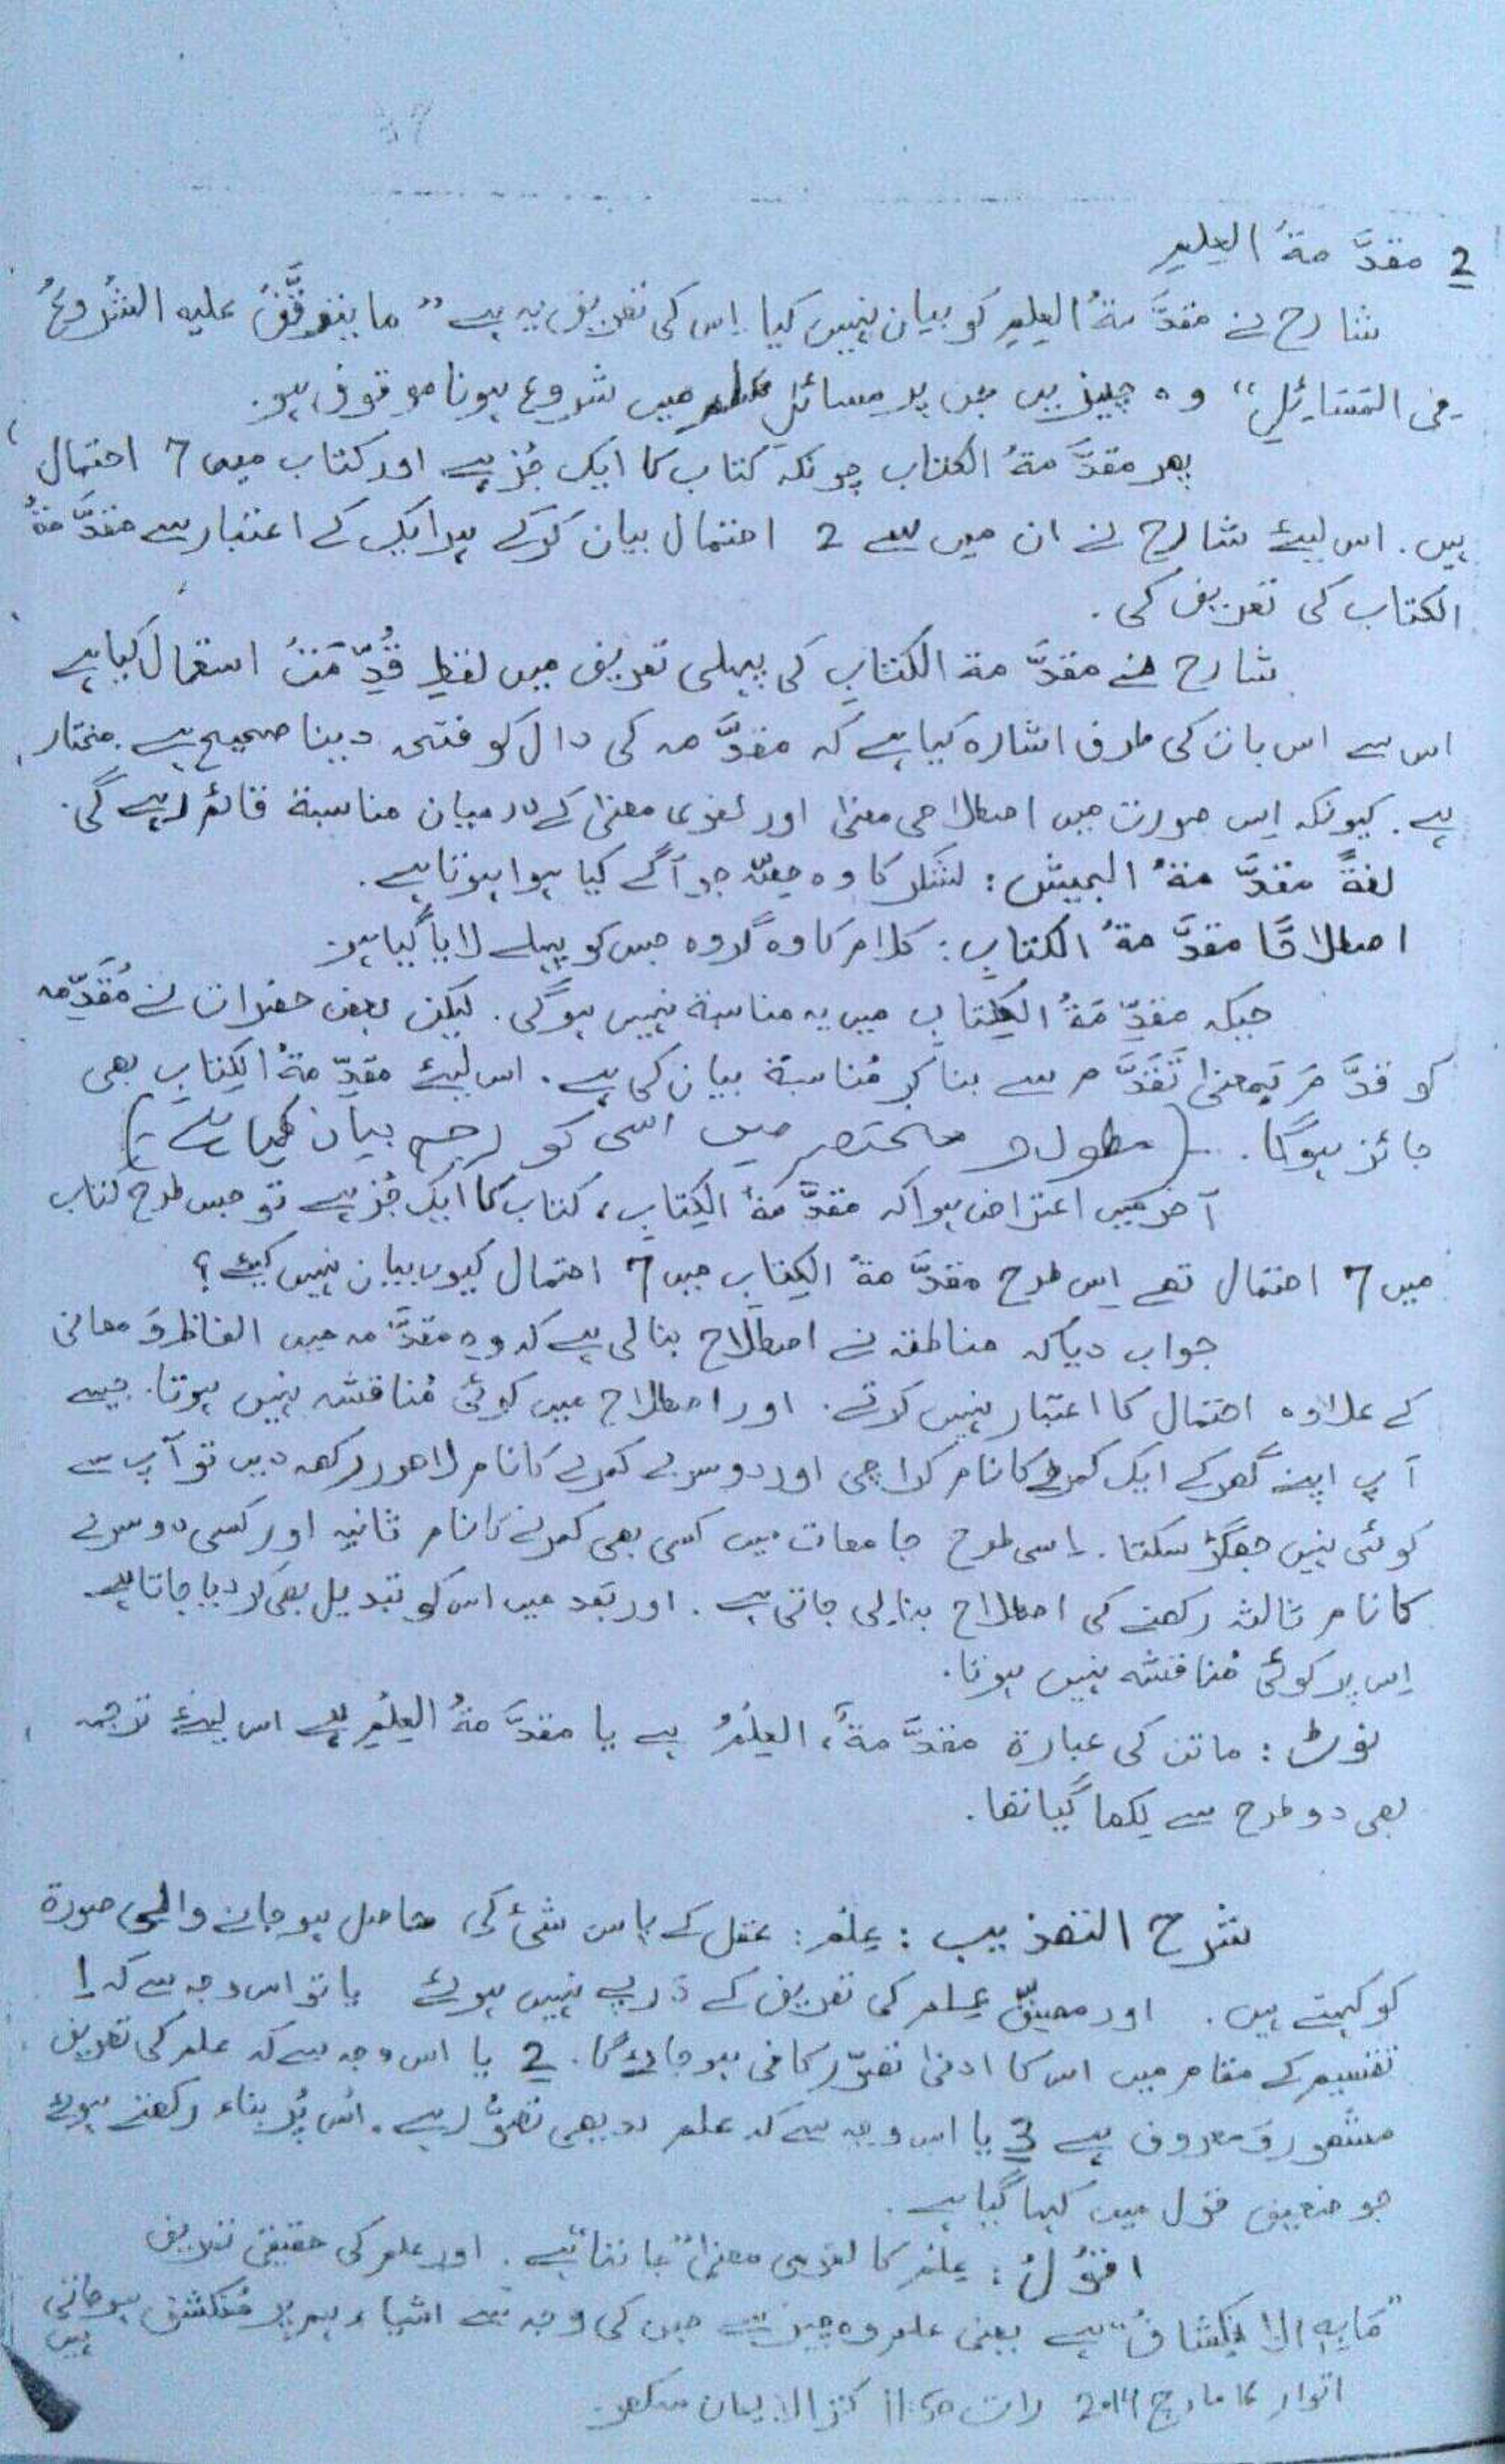 2 مقدَّمةُ العِلمِ
شارح نے مقدَّمةُ العِلمِ کو بیان نہیں کیا اِس کی تعریف یہ ہے ” ما یتوقَّفُ علیہ الشُروعُ
فی المَسَائِلِ“ وہ چیز ہیں جن پر مسائلِ علم میں شروع ہونا موقوف ہو۔
پھر مقدَّمةُ الکتاب چونکہ کتاب کا ایک جُز ہے اور کتاب میں 7 احتمال
ہیں۔ اس لیئے شارح نے ان میں سے 2 احتمال بیان کرکے ہر ایک کے اعتبار سے مقدَّمةُ
الکتاب کی تعریف کی۔
شارح نے مقدَّمة الکتابِ کی پہلی تعریف میں لفظِ قُدِّمَتْ استعمال کیا ہے
اس سے اس بات کی طرف اشارہ کیا ہے کہ مقدَّمہ کی دال کو فتحہ دینا صحیح ہے مختار
ہے۔ کیونکہ اِس صورت میں اصطلاحی معنیٰ اور لغوی معنیٰ کے درمیان مناسبة قائم رہے گی۔
لغةً مقدَّمةُ الجیش : لشکر کا وہ حصّہ جو آگے کیا ہوا ہوتا ہے۔
اصطلاحًا مقدَّمةُ الکتابِ : کلام کا وہ گروہ جس کو پہلے لایا گیا ہو۔
جبکہ مقدِّمَةُ الکِتابِ میں یہ مناسبة نہیں ہوگی۔ لیکن بعض حضرات نے مُقَدِّمہ
کو قدَّمَ بَمعنیٰ تَقَدَّمَ سے بنا کر مُناسبة بیان کی ہے۔ اس لیئے مقدِّمةُ الکِتابِ بھی
جائز ہوگا۔ (مطول و مختصر میں اسی کو راجح بیان کیا ہے)
آخر میں اعتراض ہوا کہ مقدَّمَةُ الکِتابِ، کتاب کا ایک جُز ہے تو جس طرح کتاب
میں 7 احتمال تھے اِس طرح مقدَّمةُ الکِتابِ میں 7 احتمال کیوں بیان نہیں کیئے؟
جواب دیا کہ مناطقہ نے اصطلاح بنا لی ہے کہ وہ مقدَّمہ میں الفاظ وَ معانی
کے علاوہ احتمال کا اعتبار نہیں کرتے۔ اور اصطلاح میں کوئی مُناقشہ نہیں ہوتا۔ جیسے
آپ اپنے گھر کے ایک کمرے کا نام کراچی اور دوسرے کمرے کا نام لاھور رکھ دیں تو آپ سے
کوئی نہیں جھگڑ سکتا۔ اِسی طرح جامعات میں کسی بھی کمرے کا نام ثانیہ اور کسی دوسرے
کا نام ثالثہ رکھنے کی اصطلاح بنا لی جاتی ہے۔ اور بَعد میں اس کو تبدیل بھی کر دیا جاتا ہے
اِس پر کوئی مُناقشہ نہیں ہوتا۔
نوٹ : ماتن کی عبارة مقدَّمةٌ، العِلمُ ہے یا مقدَّمةُ العِلمِ ہے اس لیئے ترجمہ
بھی دو طرح سے لکھا گیا تھا۔
شرح التھذیب : عِلم : عقل کے پاس شئ کی حاصل ہو جانے والی صورة
کو کہتے ہیں۔ اور مصنِّف عِلم کی تعریف کے دَرپے نہیں ہوئے یا تو اس وجہ سے کہ 1
تقسیم کے مقام میں اس کا ادنیٰ تصوّر کافی ہو جائے گا۔ 2 یا اس وجہ سے کہ علم کی تعریف
مشھور وَ معروف ہے 3 یا اس وجہ سے کہ علم بدیھی تصوُّر ہے۔ اُس پَر بناء رکھتے ہوئے
جو ضعیف قول میں کہا گیا ہے۔
اقوُلُ : عِلم کا لغوی معنیٰ ”جاننا“ ہے۔ اور علم کی حقیقی تعریف
”مَا بِہِ الاِنکِشافُ“ ہے یعنی علم وہ چیز ہے جس کی وجہ سے اشیاء ہم پر مُنکشف ہو جاتی ہیں
اتوار مارچ 2014 رات 11:50 کنز الایمان سکھر۔